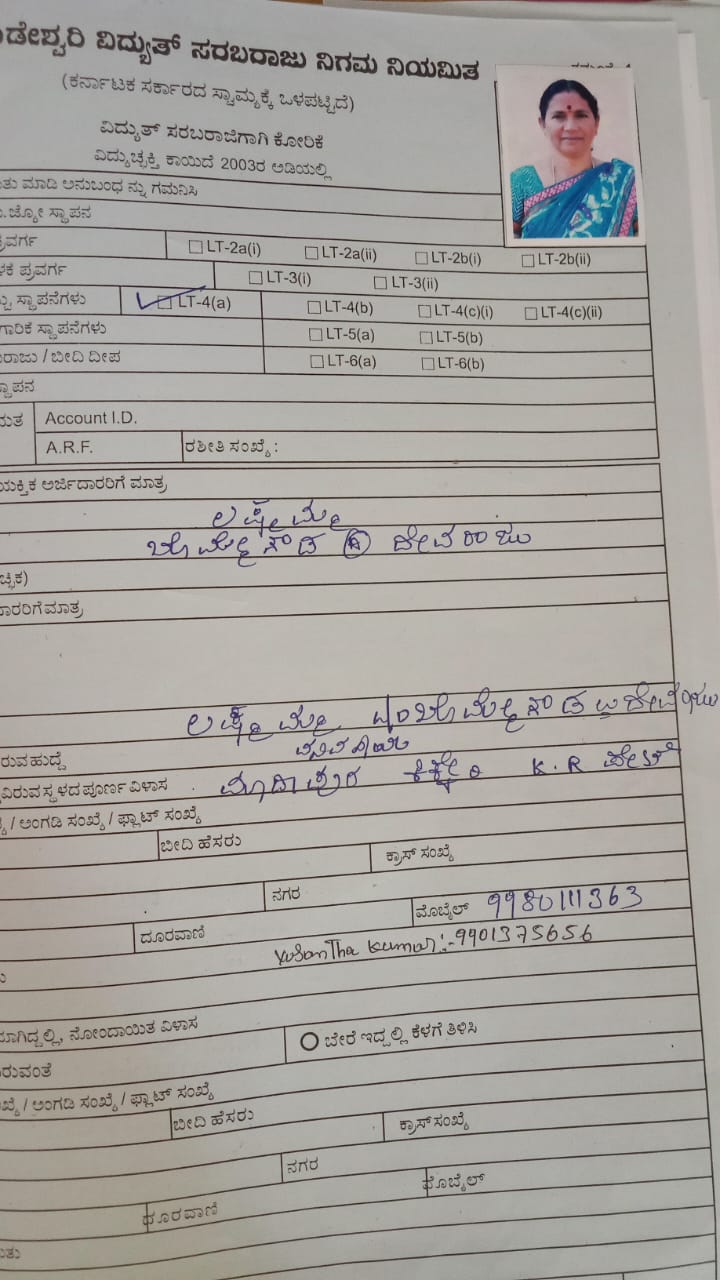 ಡೇಶ್ವರಿ ವಿದ್ಯುತ್ ಸರಬರಾಜು ನಿಗಮ ನಿಯಮಿತ
(ಕರ್ನಾಟಕ ಸರ್ಕಾರದ ಸ್ವಾಮ್ಯಕ್ಕೆ ಒಳಪಟ್ಟಿದೆ)
ವಿದ್ಯುತ್ ಸರಬರಾಜಿಗಾಗಿ ಕೋರಿಕೆ
ವಿದ್ಯುಚ್ಛಕ್ತಿ ಕಾಯಿದೆ 2003ರ ಅಡಿಯಲ್ಲಿ
ತು ಮಾಡಿ ಅನುಬಂಧ ನ್ನು ಗಮನಿಸಿ
.ಜ್ಯೋ ಸ್ಥಾಪನ
ಪ್ರವರ್ಗ LT-2a(i) LT-2a(ii) LT-2b(i) LT-2b(ii)
ಳಕೆ ಪ್ರವರ್ಗ LT-3(i) LT-3(ii)
ಸ್ಥಾಪನೆಗಳು LT-4(a) LT-4(b) LT-4(c)(i) LT-4(c)(ii)
ಗಾರಿಕೆ ಸ್ಥಾಪನೆಗಳು LT-5(a) LT-5(b)
ರಾಜು / ಬೀದಿ ದೀಪ LT-6(a) LT-6(b)
ಸ್ಥಾಪನ
ಮತ Account I.D.
A.R.F. ರಶೀತಿ ಸಂಖ್ಯೆ :
ಯಕ್ತಿಕ ಅರ್ಜಿದಾರರಿಗೆ ಮಾತ್ರ
ಲಕ್ಷ್ಮಮ್ಮ
ಬೊಮ್ಮೇಗೌಡ ದೇವರಾಜು
ಚ್ಛಿಕ)
ದಾರರಿಗೆ ಮಾತ್ರ
ಲಕ್ಷ್ಮಮ್ಮ
ರುವ ಹುದ್ದೆ
ವಿರುವ ಸ್ಥಳದ ಪೂರ್ಣ ವಿಳಾಸ ಮಾದಾಪುರ ಕಿಕ್ಕೇರಿ K.R ಪೇಟೆ
/ ಅಂಗಡಿ ಸಂಖ್ಯೆ / ಫ್ಲಾಟ್ ಸಂಖ್ಯೆ
ಬೀದಿ ಹೆಸರು ಕ್ರಾಸ್ ಸಂಖ್ಯೆ
ನಗರ
ದೂರವಾಣಿ ಮೊಬೈಲ್ 9980111363
Kumar:-9901375656
ವಾಗಿದ್ದಲ್ಲಿ, ನೋಂದಾಯಿತ ವಿಳಾಸ
ರುವಂತೆ ಬೇರೆ ಇದ್ದಲ್ಲಿ ಕೆಳಗೆ ತಿಳಿಸಿ
ಖ್ಯೆ / ಅಂಗಡಿ ಸಂಖ್ಯೆ / ಫ್ಲಾಟ್ ಸಂಖ್ಯೆ
ಬೀದಿ ಹೆಸರು ಕ್ರಾಸ್ ಸಂಖ್ಯೆ
ನಗರ
ದೂರವಾಣಿ ಮೊಬೈಲ್